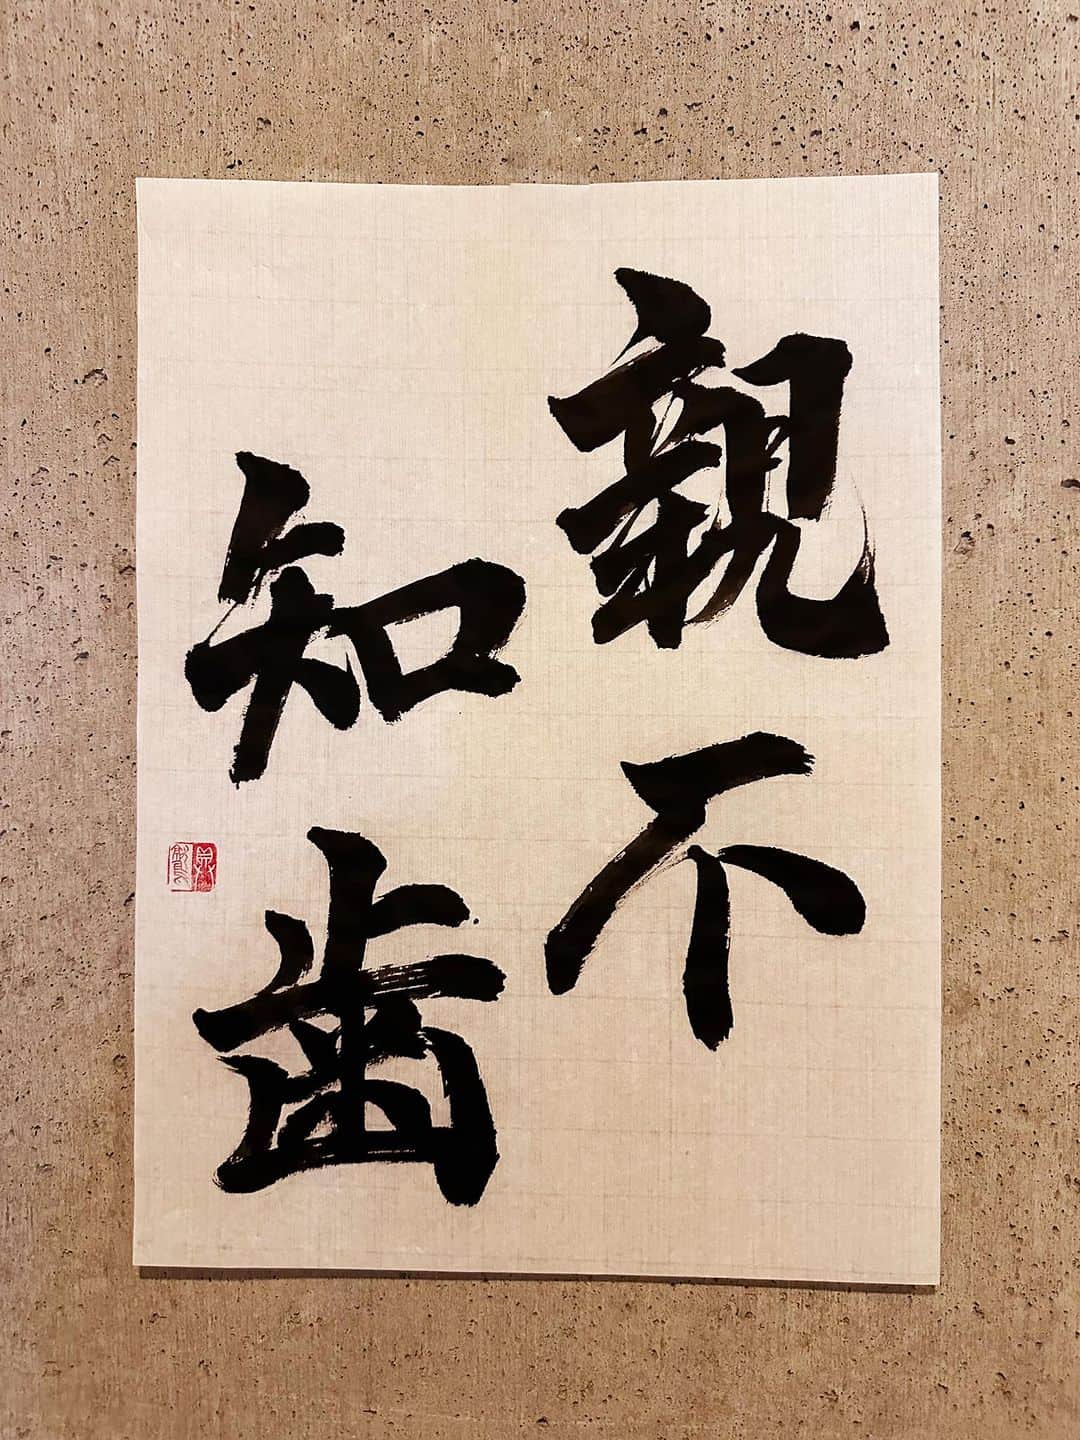 親不
知歯